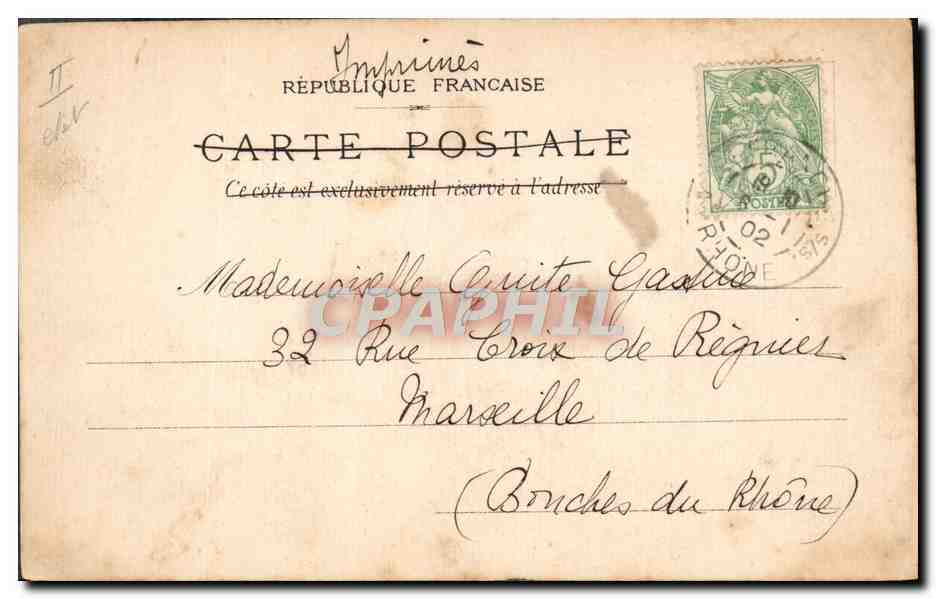 Imprimés
RÉPUBLIQUE FRANÇAISE
CARTE POSTALE
Ce côté est exclusivement réservé à l'adresse
POSTES
02
RHÔNE
Mademoiselle
CPAPHIL
32 Rue Croix de Régnier
Marseille
(Bouches du Rhône)
II